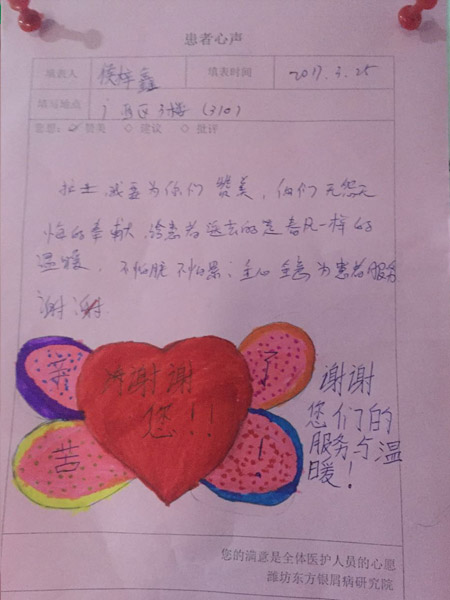 患者心声
填表人 侯梓鑫 填表时间 2017.3.25
填写地点 病区3楼 (310)
意想: 赞美 ◇ 建议 ◇ 批评
护士,我要为你们赞美,你们无怨无
悔的奉献,给患者送去的是春风一样的
温暖,不怕脏不怕累;全心全意为患者服务
谢谢
辛 谢谢 了
您!!
苦 !
谢谢
您们的
服务与温
暖!
您的满意是全体医护人员的心愿
潍坊东方银屑病研究院